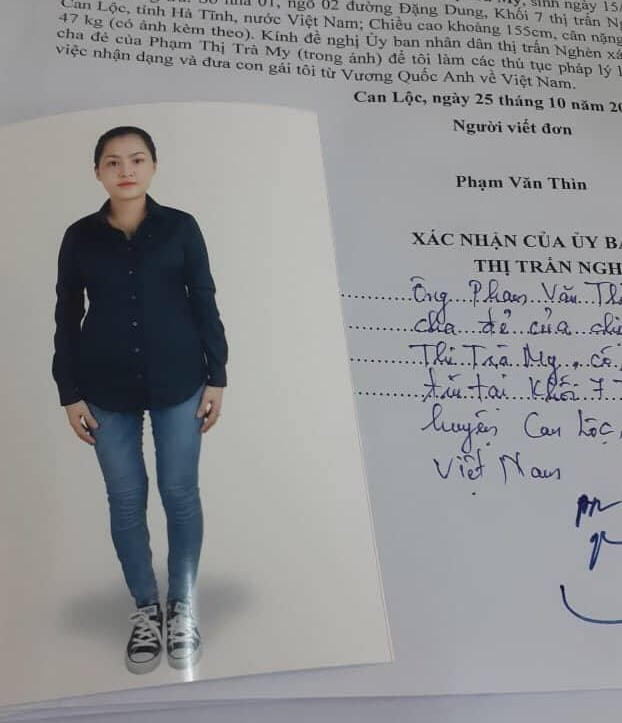 Mỹ, sinh ngày 15/
Can Lộc, tỉnh Hà Tĩnh, nước Việt Nam; Chiều cao khoảng 155cm, cân nặng
47 kg (có ảnh kèm theo). Kính đề nghị Ủy ban nhân dân thị trấn Nghèn xá
cha đẻ của Phạm Thị Trà My (trong ảnh) để tôi làm các thủ tục pháp lý l
việc nhận dạng và đưa con gái tôi từ Vương Quốc Anh về Việt Nam.
Can Lộc, ngày 25 tháng 10 năm 20
Người viết đơn
Phạm Văn Thìn
XÁC NHẬN CỦA ỦY BA
THỊ TRẤN NGH
Ông Phạm Văn Th
cha đẻ của ch
Thị Trà My, có
tại Khối 7 T
huyện Can Lộc,
Việt Nam